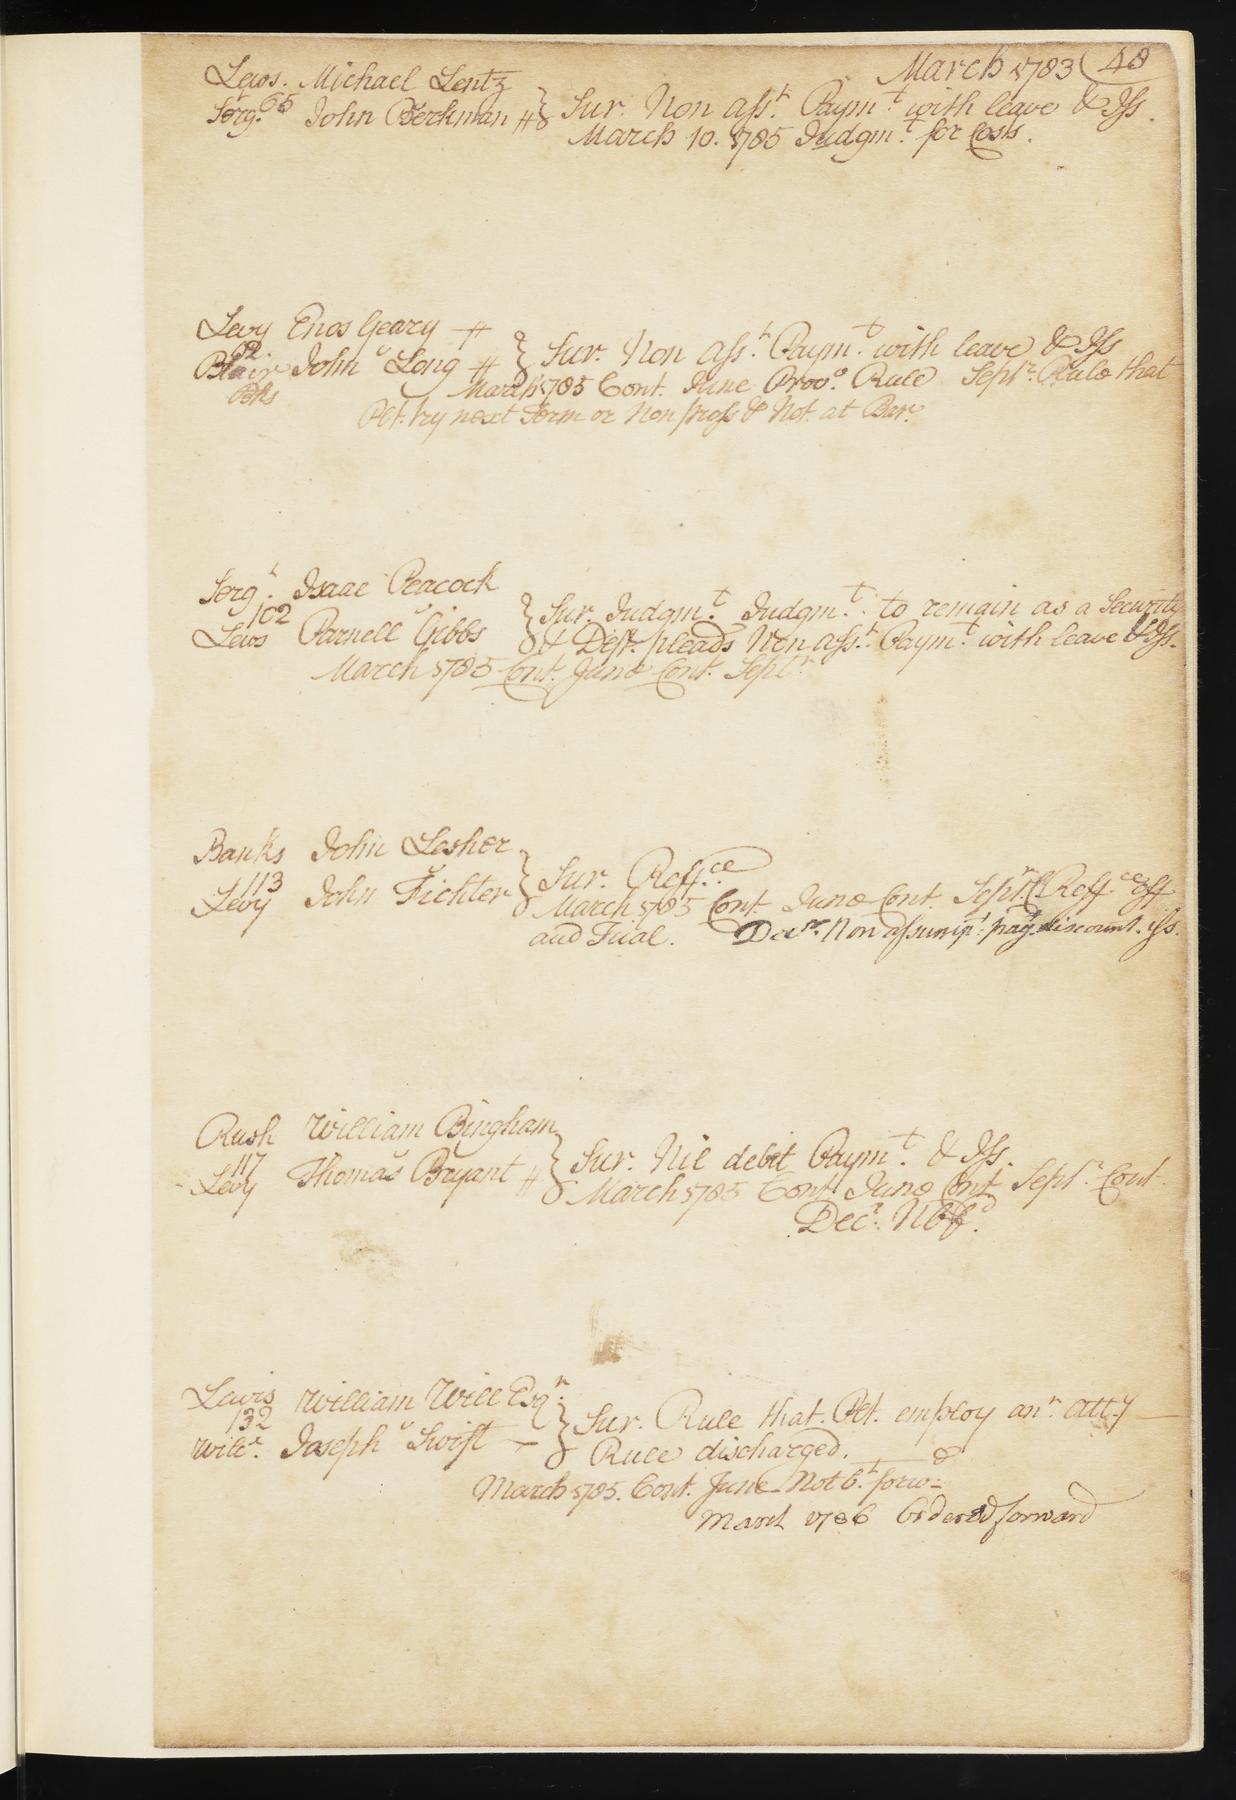 March 1783 (48
Lews. Michael Lentz
Serg.t 65 John Berkman # } Sur. Non ass.t Paym.t with leave & Iss.
March 10. 1785 Judgm.t for Costs.
Levy Enos Geary #
Blair John Long # } Sur. Non Ass.t Paym.t with leave & Iss
March 1785 Cont. June Proc.o Rule Sept.r Rule that
Plt. try next Term or Non pross & Not. at Bar.
Serg.t Isaac Peacock
102
Lews Parnell Gibbs } Sur. Judgm.t Judgm.t to remain as a Security
& Deft. pleads Non ass.t Paym.t with leave & Iss.
March 1785 Cont. June Cont. Sept.r
Banks John Lesher
113
Levy John Fichter } Sur. Reff.ce
March 1785 Cont. June Cont. Sept.r Reff.ce off
and Trial. Dec.r Non assump.t pay.t discount. iss.
Rush William Bingham
117
Levy Thomas Bryant # } Sur. Nil debit Paym.t & Iss.
March 1785 Cont. June Cont. Sept.r Cont.
Dec.r N B f.d
Lewis William Will Esq.r
132
Wilc.x Joseph Swift } Sur. Rule that Plt. employ an.r Att.y
Rule discharged.
March 1785. Cont. June Not b.t forw.d
March 1786 Ordered forward